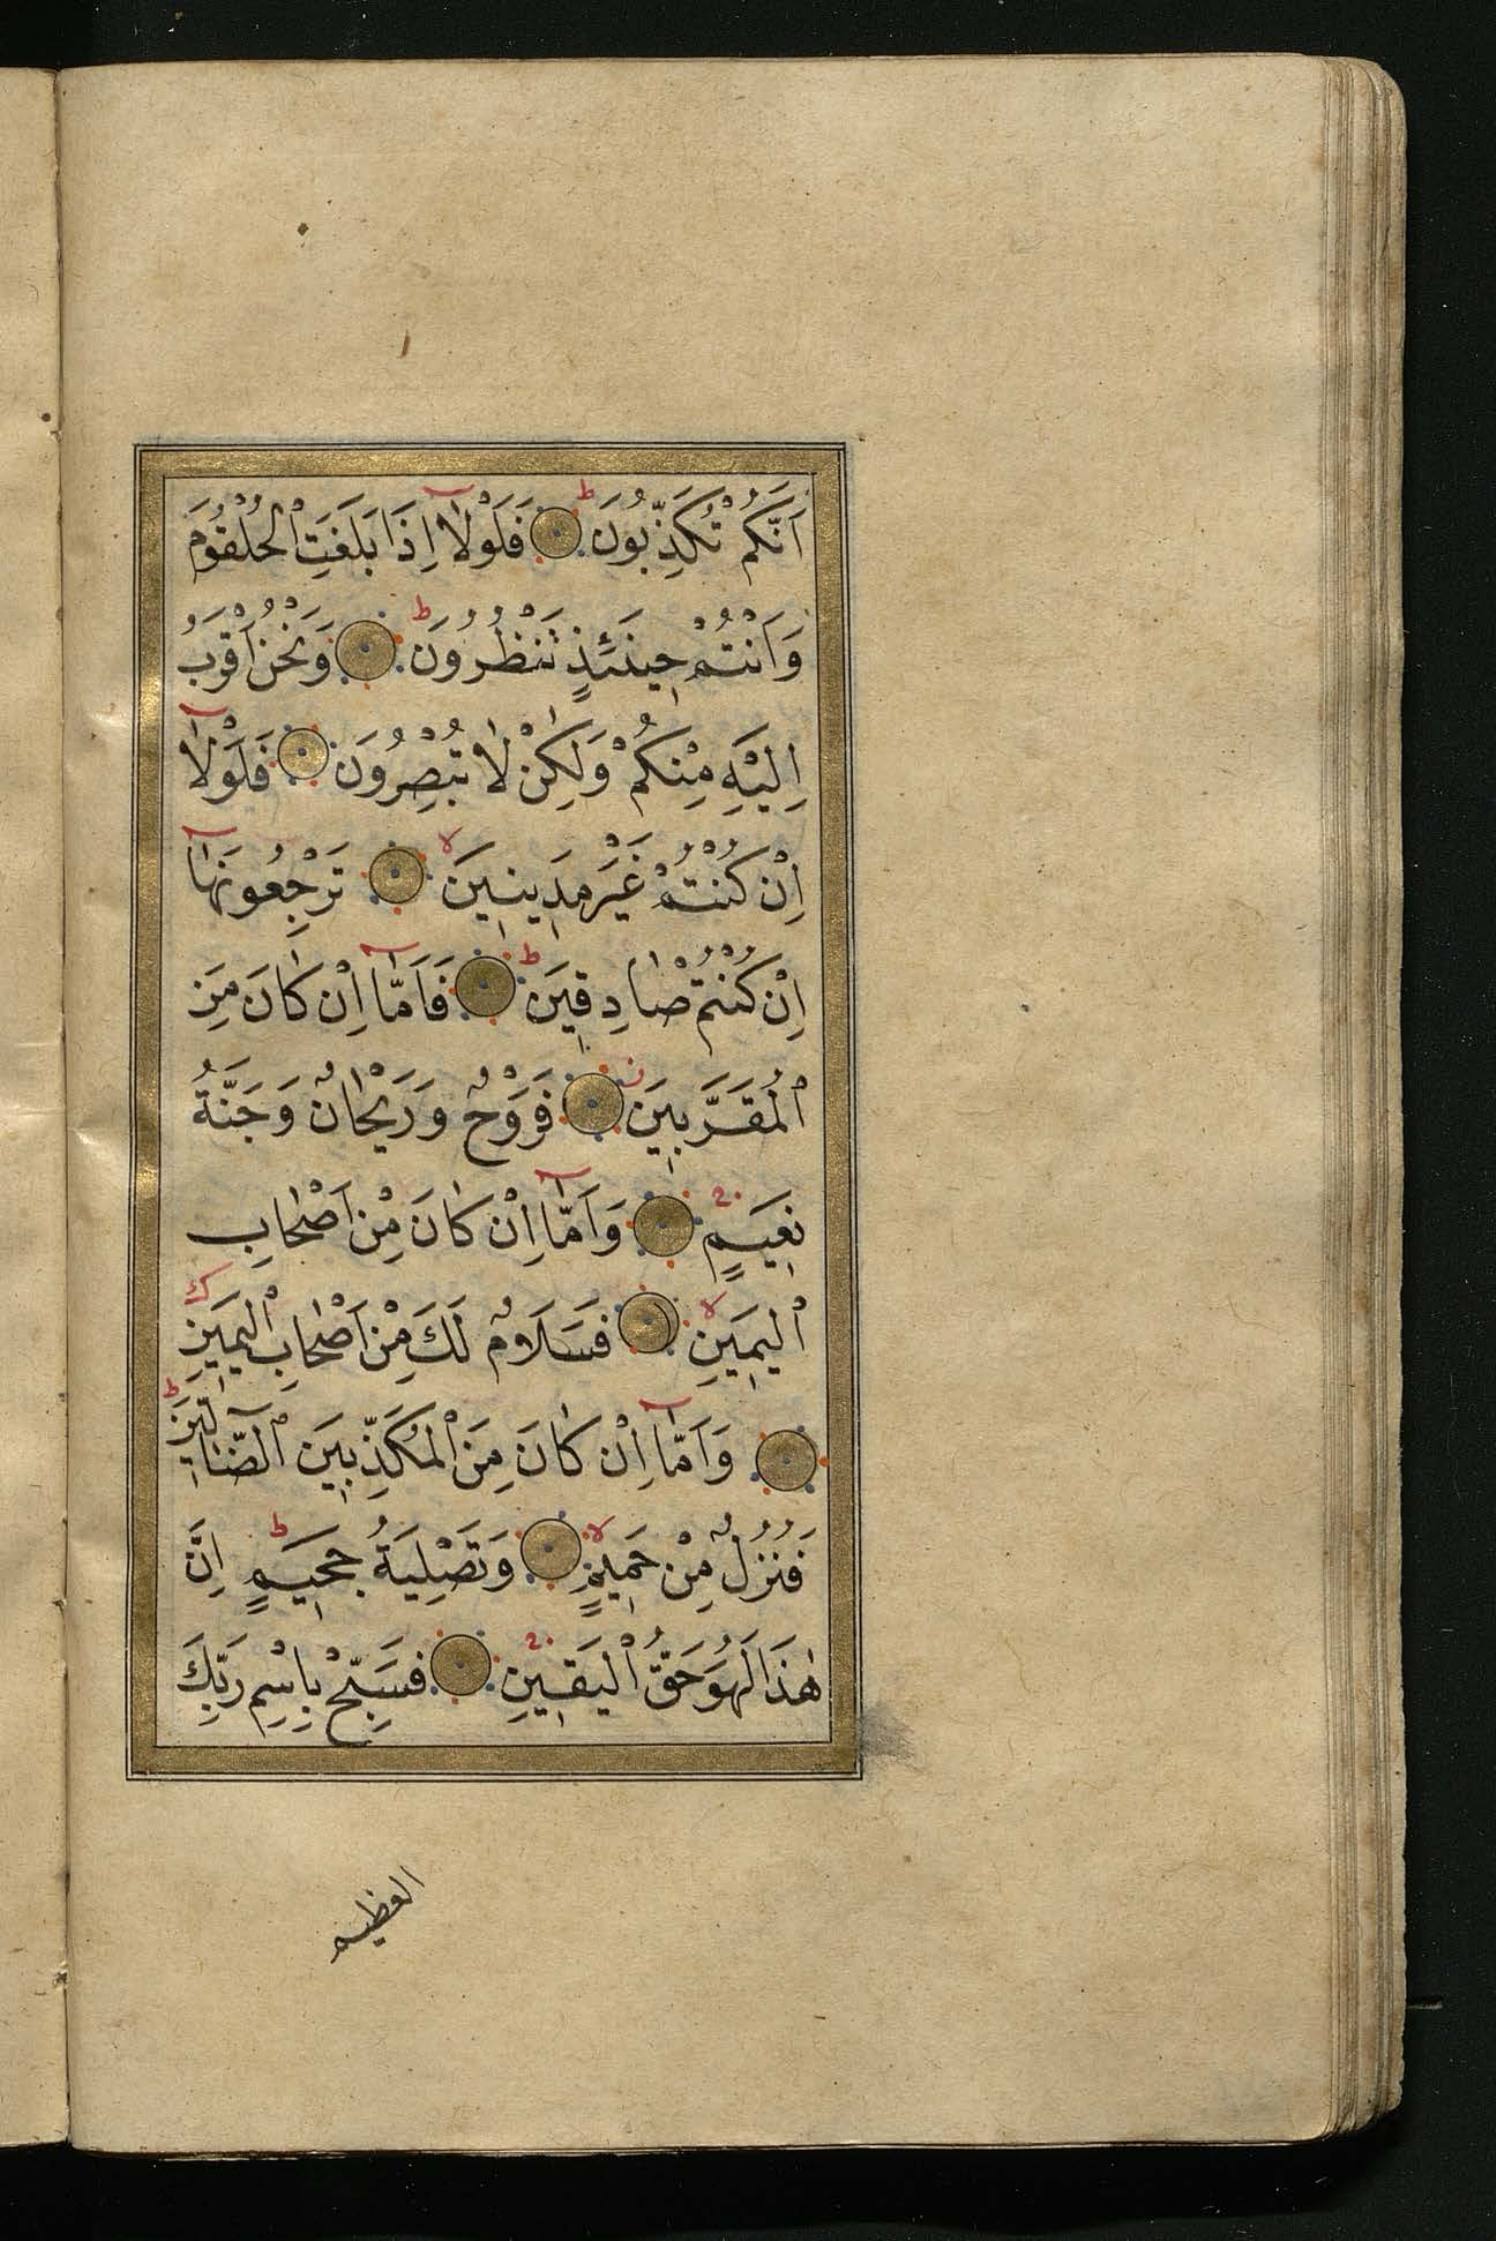 اَنَّكُمْ تُكَذِّبُونَ ط فَلَوْلَٓا اِذَا بَلَغَتِ الْحُلْقُومَ
وَاَنْتُمْ حِينَئِذٍ تَنْظُرُونَ ط وَنَحْنُ اَقْرَبُ
اِلَيْهِ مِنْكُمْ وَلٰكِنْ لَا تُبْصِرُونَ فَلَوْلَٓا
اِنْ كُنْتُمْ غَيْرَ مَدِينِينَ لا تَرْجِعُونَهَٓا
اِنْ كُنْتُمْ صَادِقِينَ ط فَاَمَّٓا اِنْ كَانَ مِنَ
الْمُقَرَّبِينَ فَرَوْحٌ وَرَيْحَانٌ وَجَنَّةُ
نَعِيمٍ وَاَمَّٓا اِنْ كَانَ مِنْ اَصْحَابِ
الْيَمِينِ لا فَسَلَامٌ لَكَ مِنْ اَصْحَابِ الْيَمِينِ
وَاَمَّٓا اِنْ كَانَ مِنَ الْمُكَذِّبِينَ الضَّٓالِّينَ ط
فَنُزُلٌ مِنْ حَمِيمٍ لا وَتَصْلِيَةُ جَحِيمٍ ط اِنَّ
هٰذَا لَهُوَ حَقُّ الْيَقِينِ فَسَبِّحْ بِاسْمِ رَبِّكَ
العظيم